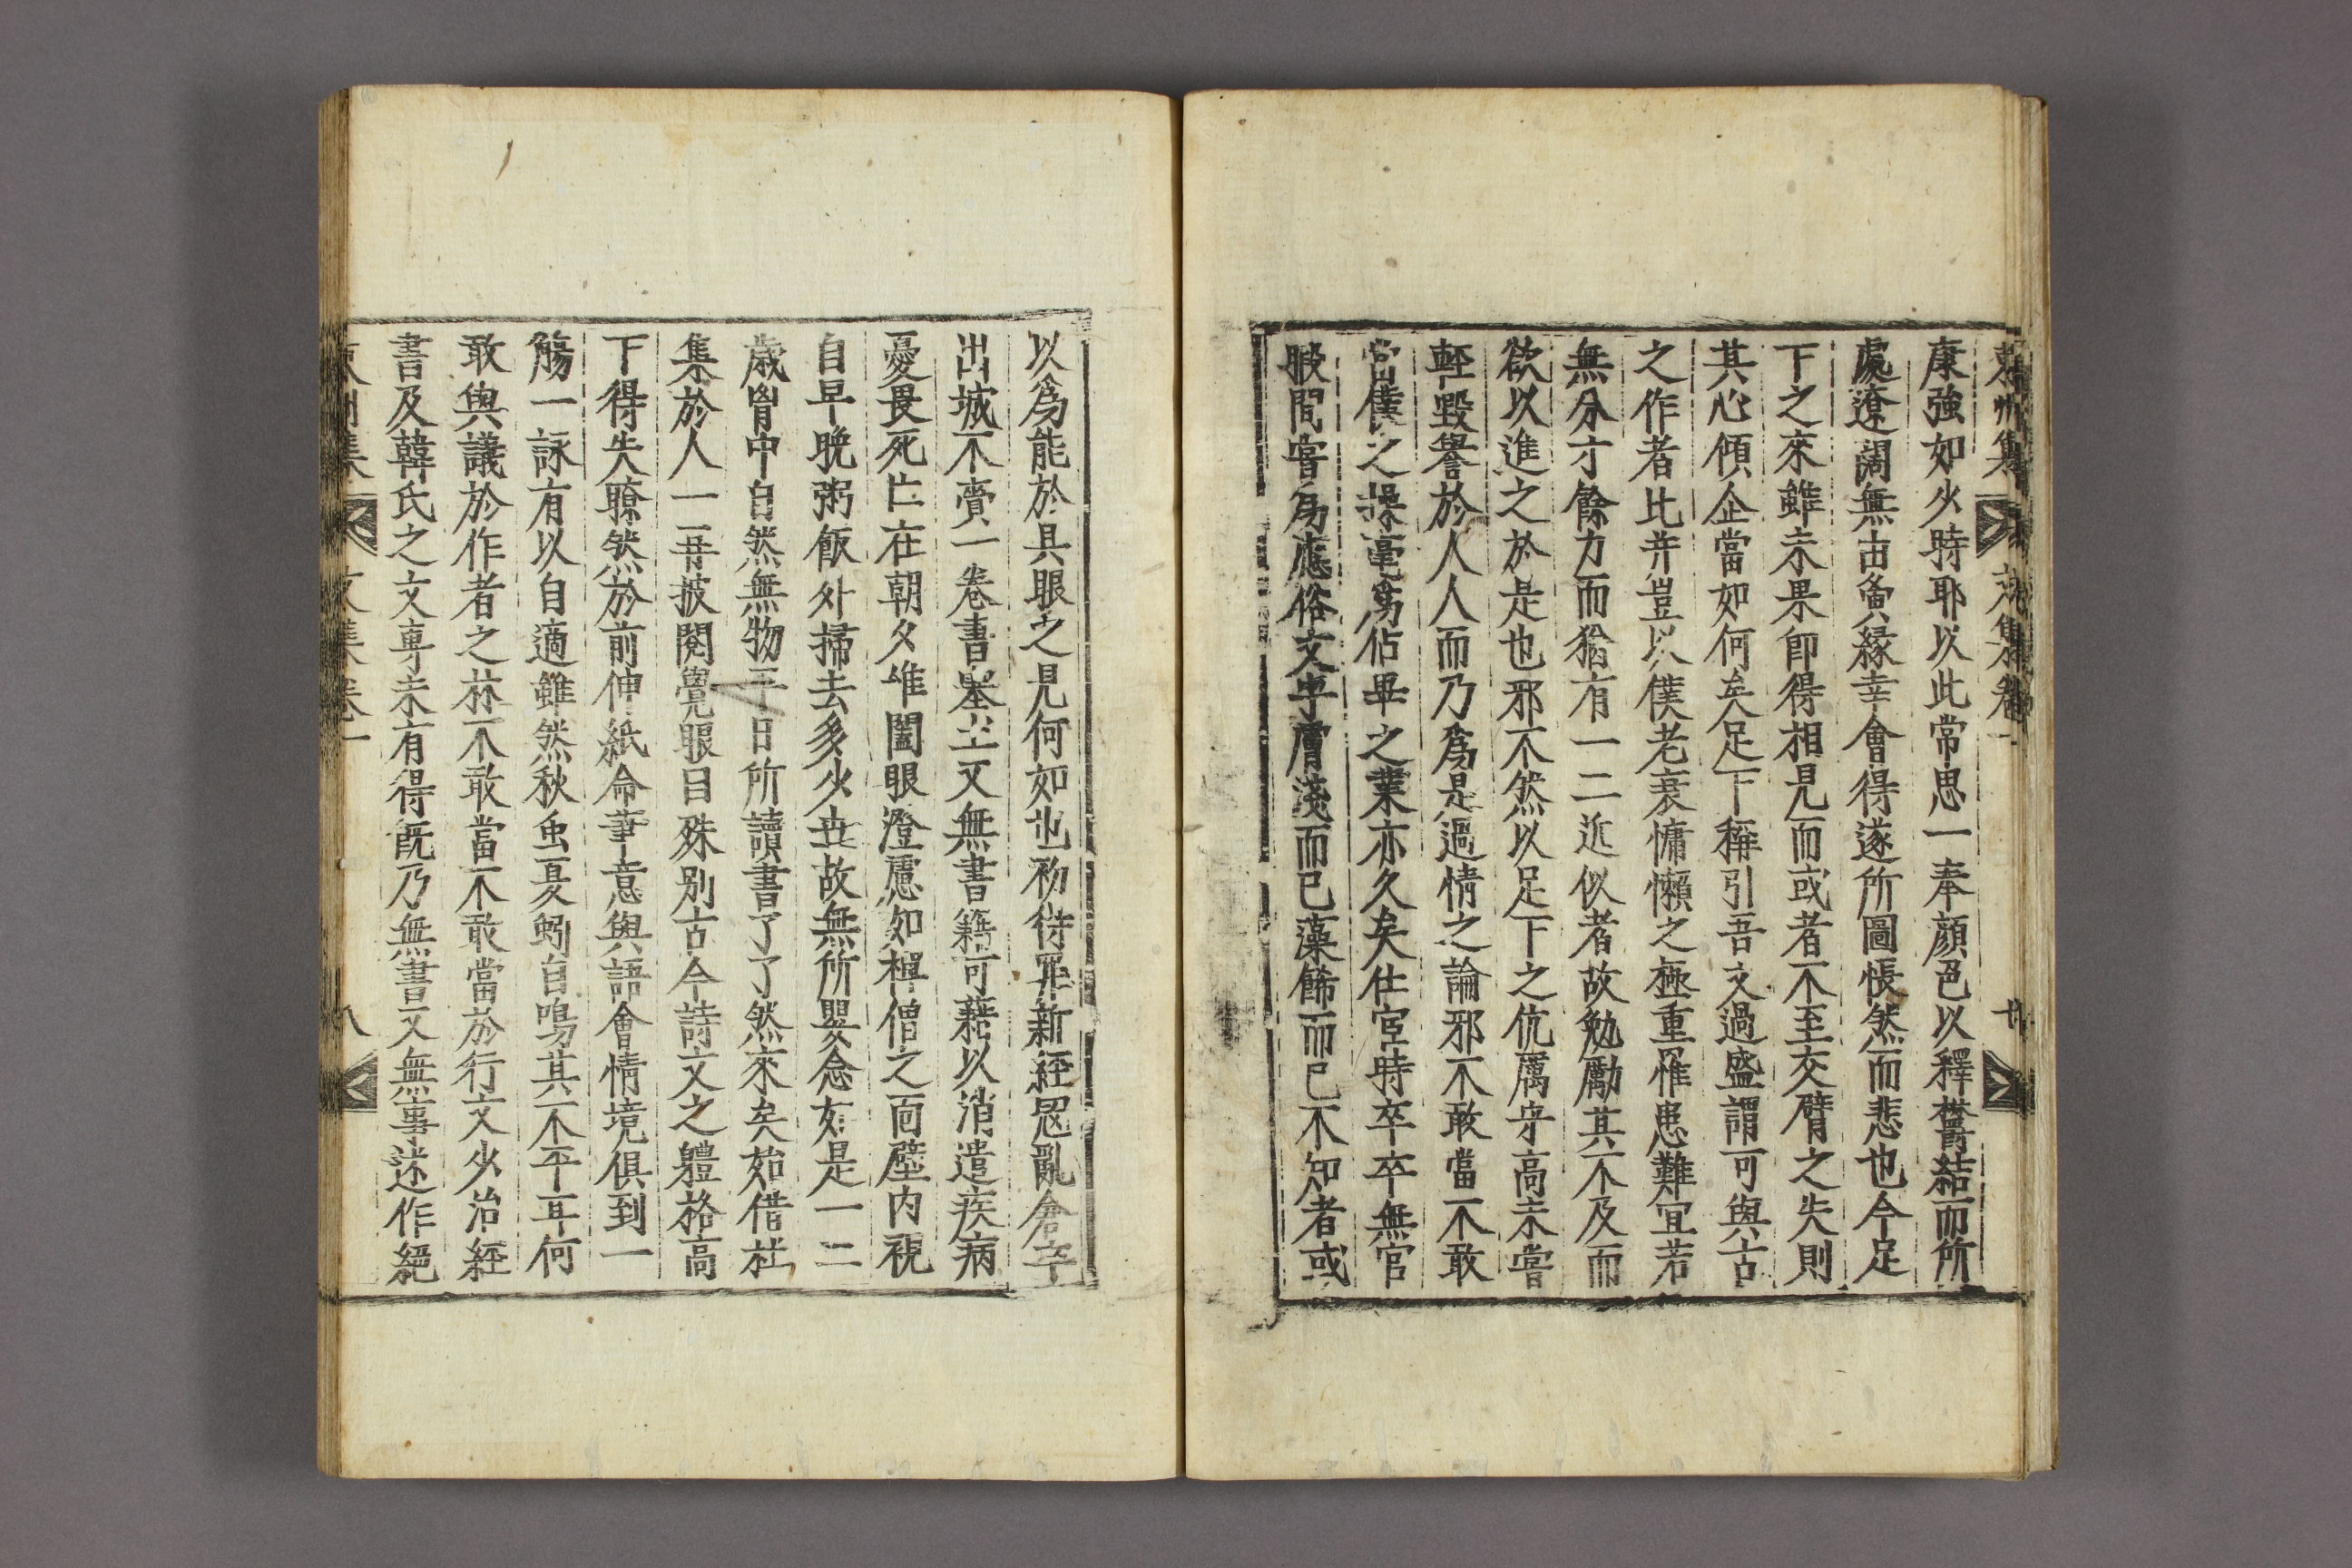 東州集 文集卷一 七
康強如少時耶以此常思一奉顔色以釋欝結而所
處遼闊無由夤縁幸會得遂所圖悵然而悲也今足
下之來雖未果卽得相見而或者不至交臂之失則
其心傾企當如何矣足下稱引吾文過盛謂可與古
之作者比并豈以僕老衰慵懶之極重罹患難冝若
無分寸餘力而猶有一二近似者故勉勵其不及而
欲以進之於是也邪不然以足下之伉厲守高未嘗
輕毀譽於人人而乃爲是過情之論邪不敢當不敢
當僕之操毫爲佔畢之業亦久矣仕宦時卒卒無官
暇間嘗爲應俗文字膚淺而已藻餙而已不知者或
以爲能於具眼之見何如也初待罪新經寇亂倉卒
出城不賷一卷書塞上又無書籍可藉以消遣疾病
憂畏死亡在朝夕唯闔眼澄慮如禪僧之面壁内視
自早晩粥飯外掃去多少世故無所嬰念如是一二
歳胷中自然無物平日所讀書了了然來矣始借杜
集於人一再披閲覺眼目殊別古今詩文之軆格高
下得失瞭然於前伸紙命筆意與語會情境俱到一
觴一詠有以自適雖然秋虫憂蚓自鳴其不平耳何
敢與議於作者之林不敢當不敢當於行文少治經
書及韓氏之文專未有得旣乃無書又無事述作絕
東州集 文集卷一 八